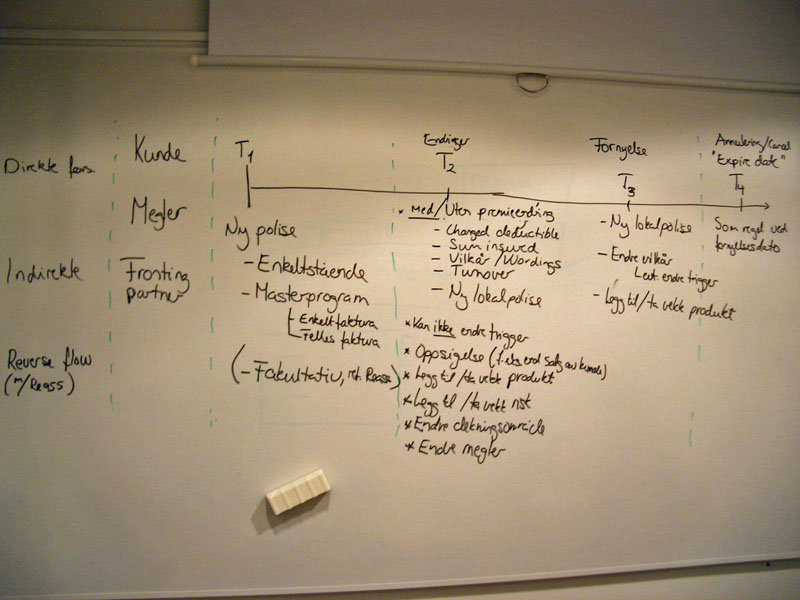 Direkte fors.
Indirekte
Reverse flow
(m/Reass)
Kunde
Megler
Fronting
partner
T1
Ny polise
- Enkeltstående
- Masterprogram
- Enkelt faktura
- Felles faktura
(- Fakultativ, ref. Reass)
Endringer
T2
* Med/Uten premieendring
- Changed deductible
- Sum insured
- Vilkår/Wordings
- Turnover
- Ny lokalpolise
* Kan ikke endre trigger
* Oppsigelse (f.eks ved salg av kunde)
* Legg til/ta vekk produkt
* Legg til/ta vekk risk
* Endre dekningsområde
* Endre megler
Fornyelse
T3
- Ny lokalpolise
- Endre vilkår
endre trigger
- Legg til/ta vekk produkt
Annullering/Cancel
"Expire date"
T4
Som regel ved
fornyelsesdato